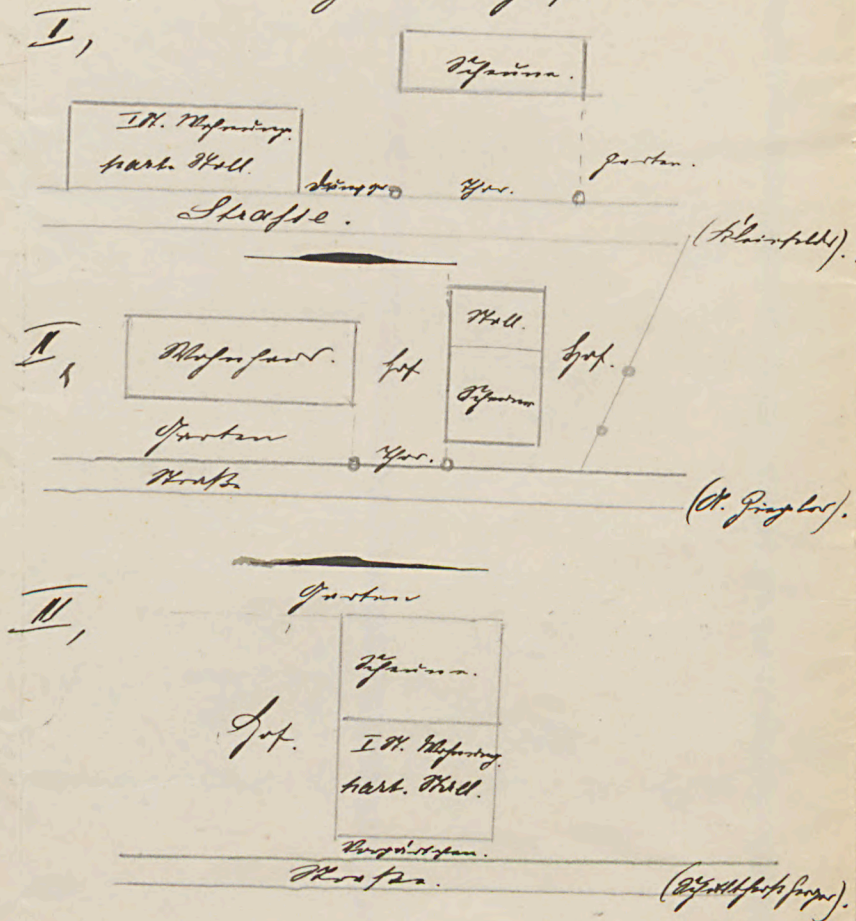 I,
Scheune.
I St. Wohnung.
part. Stall.
Dünger
Thor.
Garten.
Straße.
(Kleinfelder).
II,
Wohnhaus.
Hof
Stall.
Scheune
Hof.
Garten
Thor.
Straße
(A. Ziegler).
III,
Garten
Scheune.
Hof.
I St. Wohnung.
part. Stall.
Vorgärtchen.
Straße.